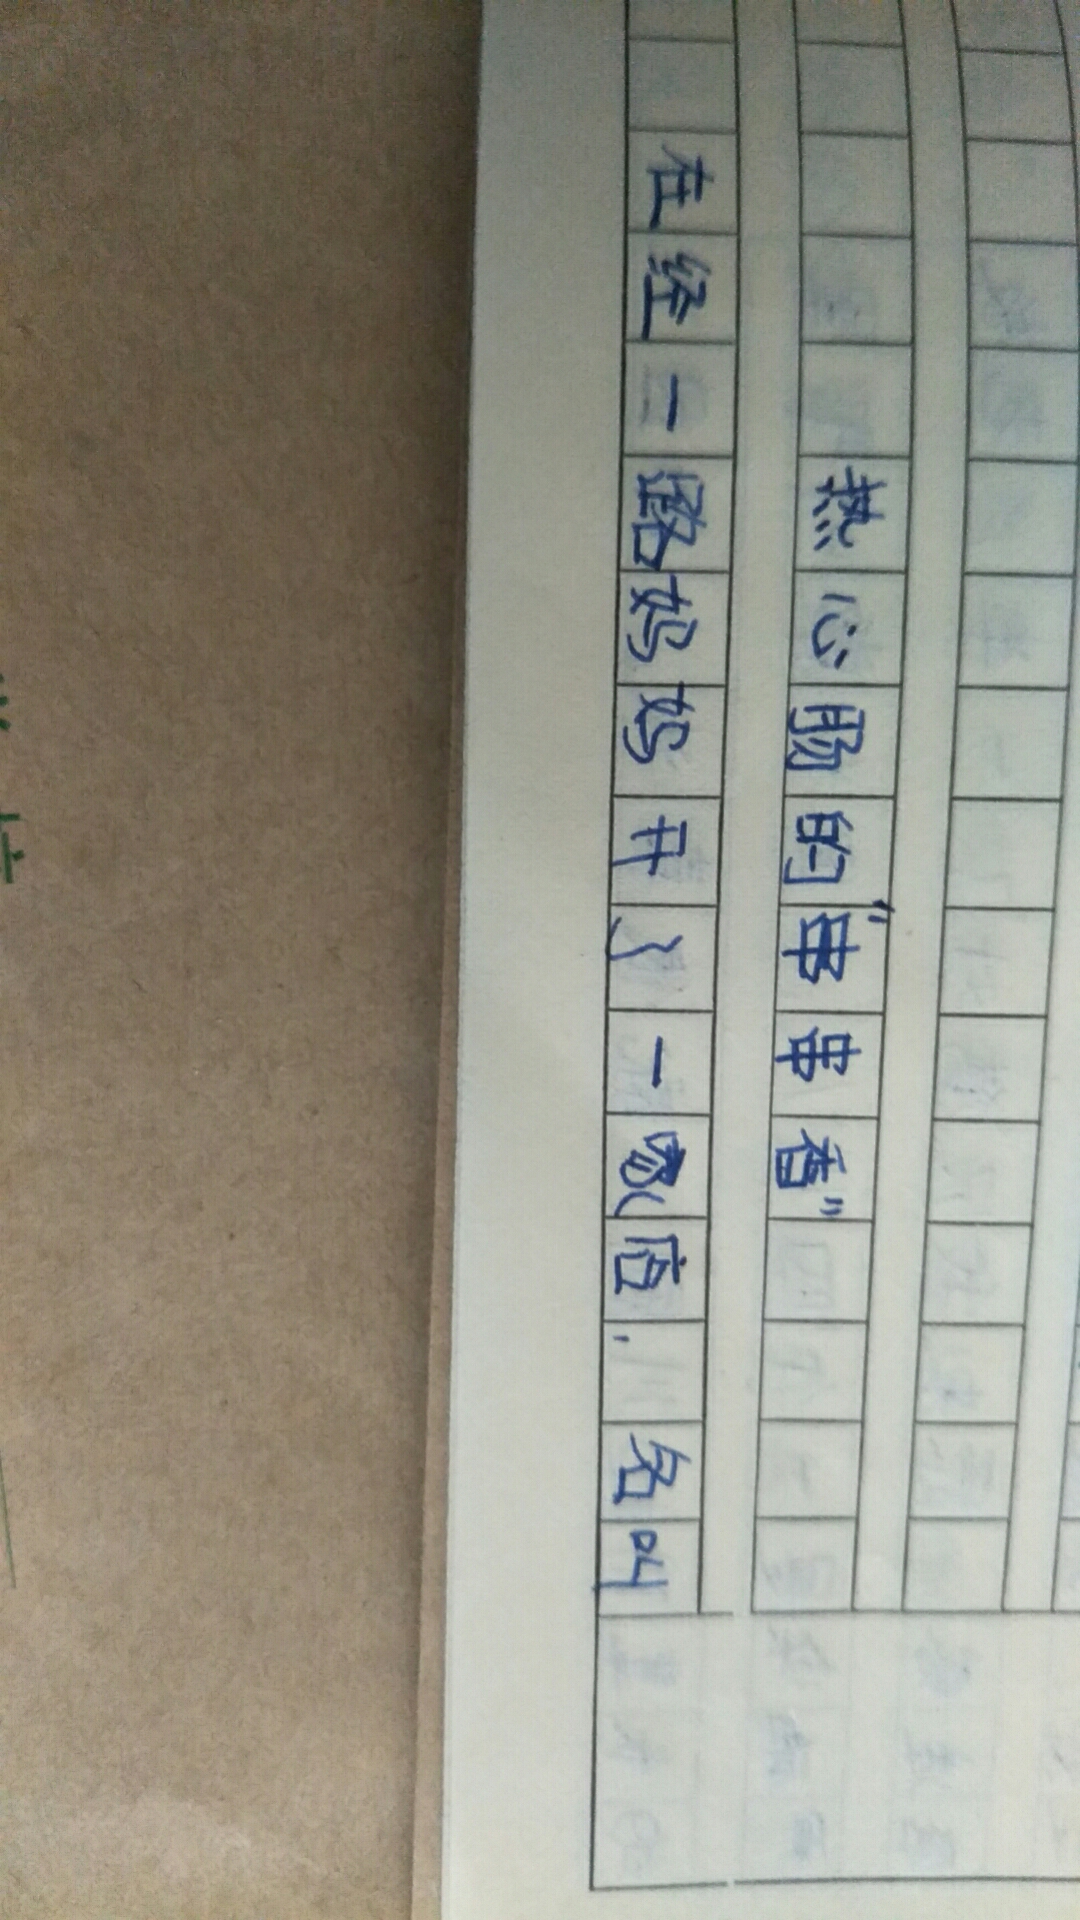 热心肠的“串串香”
在经一路妈妈开了一家店,名叫